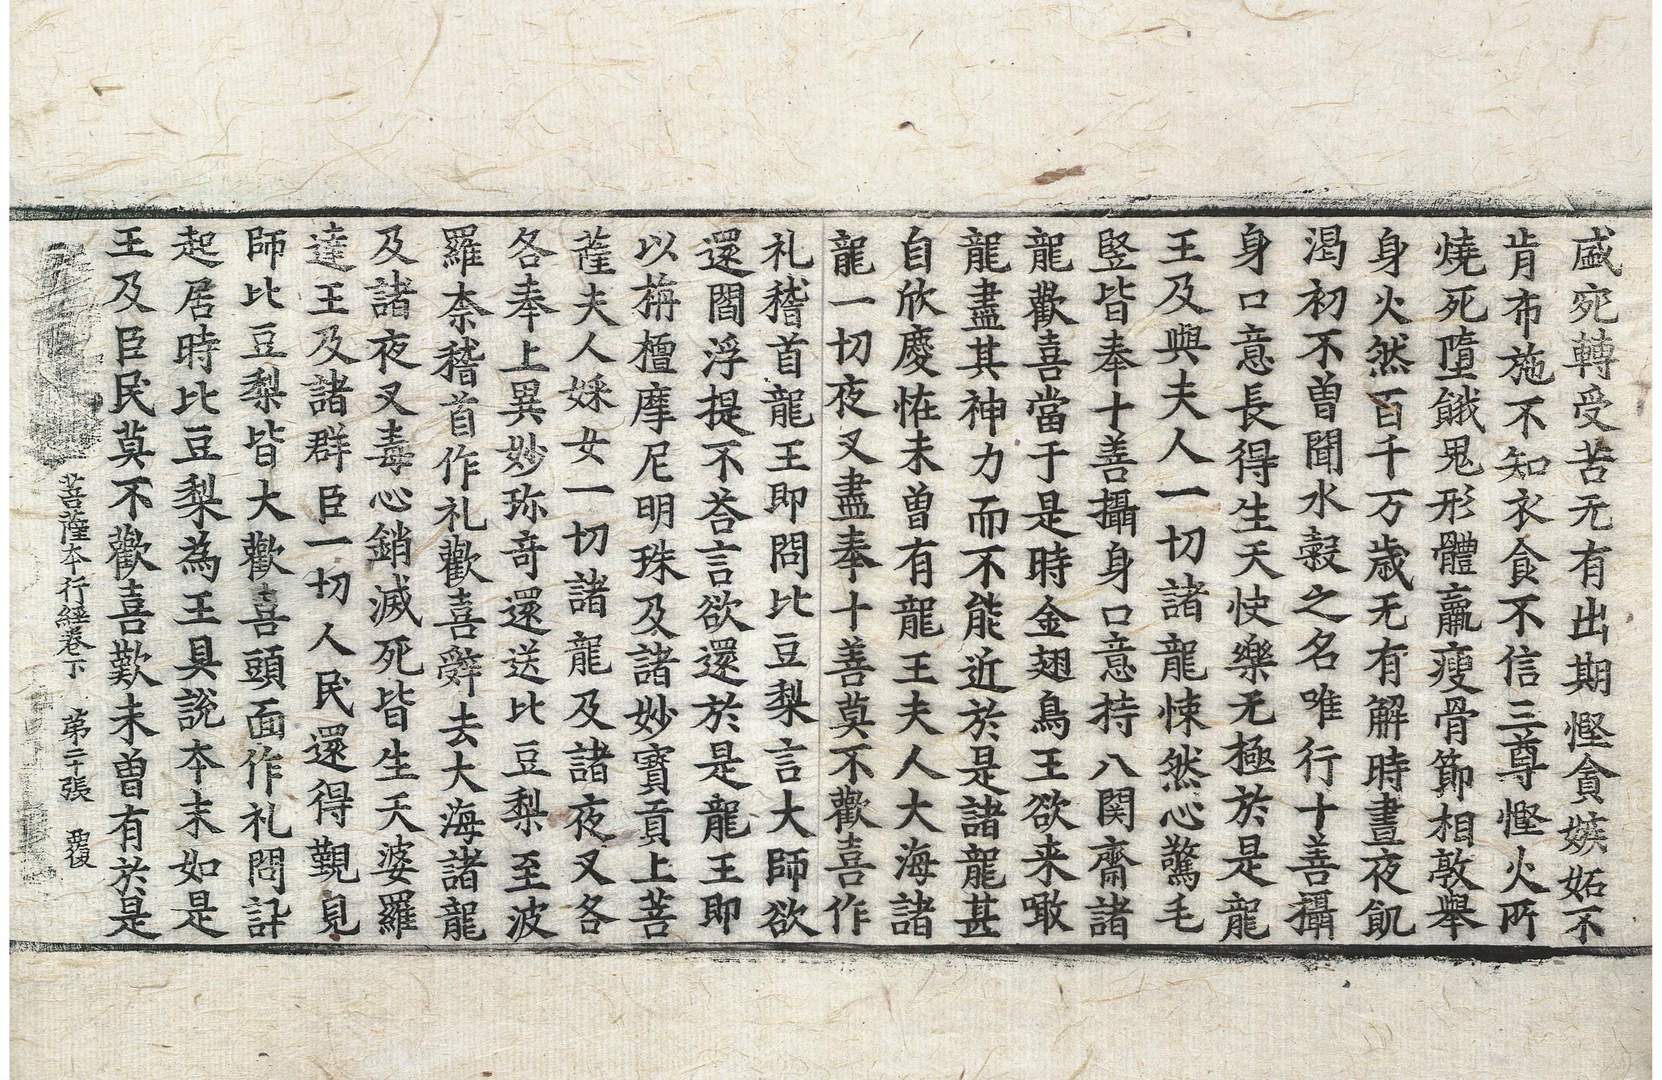 盛宛轉受苦无有出期慳貪嫉妬不
肯布施不知衣食不信三尊慳火所
燒死墮餓鬼形體羸瘦骨節相敦舉
身火然百千万歳无有解時晝夜飢
渴初不曾聞水糓之名唯行十善攝
身口意長得生天快樂无極於是龍
王及與夫人一切諸龍悚然心驚毛
竪皆奉十善攝身口意持八関齋諸
龍歡喜當于是時金翅鳥王欲来噉
龍盡其神力而不能近於是諸龍甚
自欣慶恠未曾有龍王夫人大海諸
龍一切夜叉盡奉十善莫不歡喜作
礼稽首龍王即問比豆梨言大師欲
還閻浮提不荅言欲還於是龍王即
以栴檀摩尼明珠及諸妙寳貢上菩
薩夫人婇女一切諸龍及諸夜叉各
各奉上異妙珎竒還送比豆梨至波
羅奈稽首作礼歡喜辤去大海諸龍
及諸夜叉毒心銷滅死皆生天婆羅
達王及諸群臣一切人民還得覲見
師比豆梨皆大歡喜頭面作礼問訊
起居時比豆梨為王具說夲末如是
王及臣民莫不歡喜歎未曾有於是
菩薩夲行經卷下　第二十張　覆